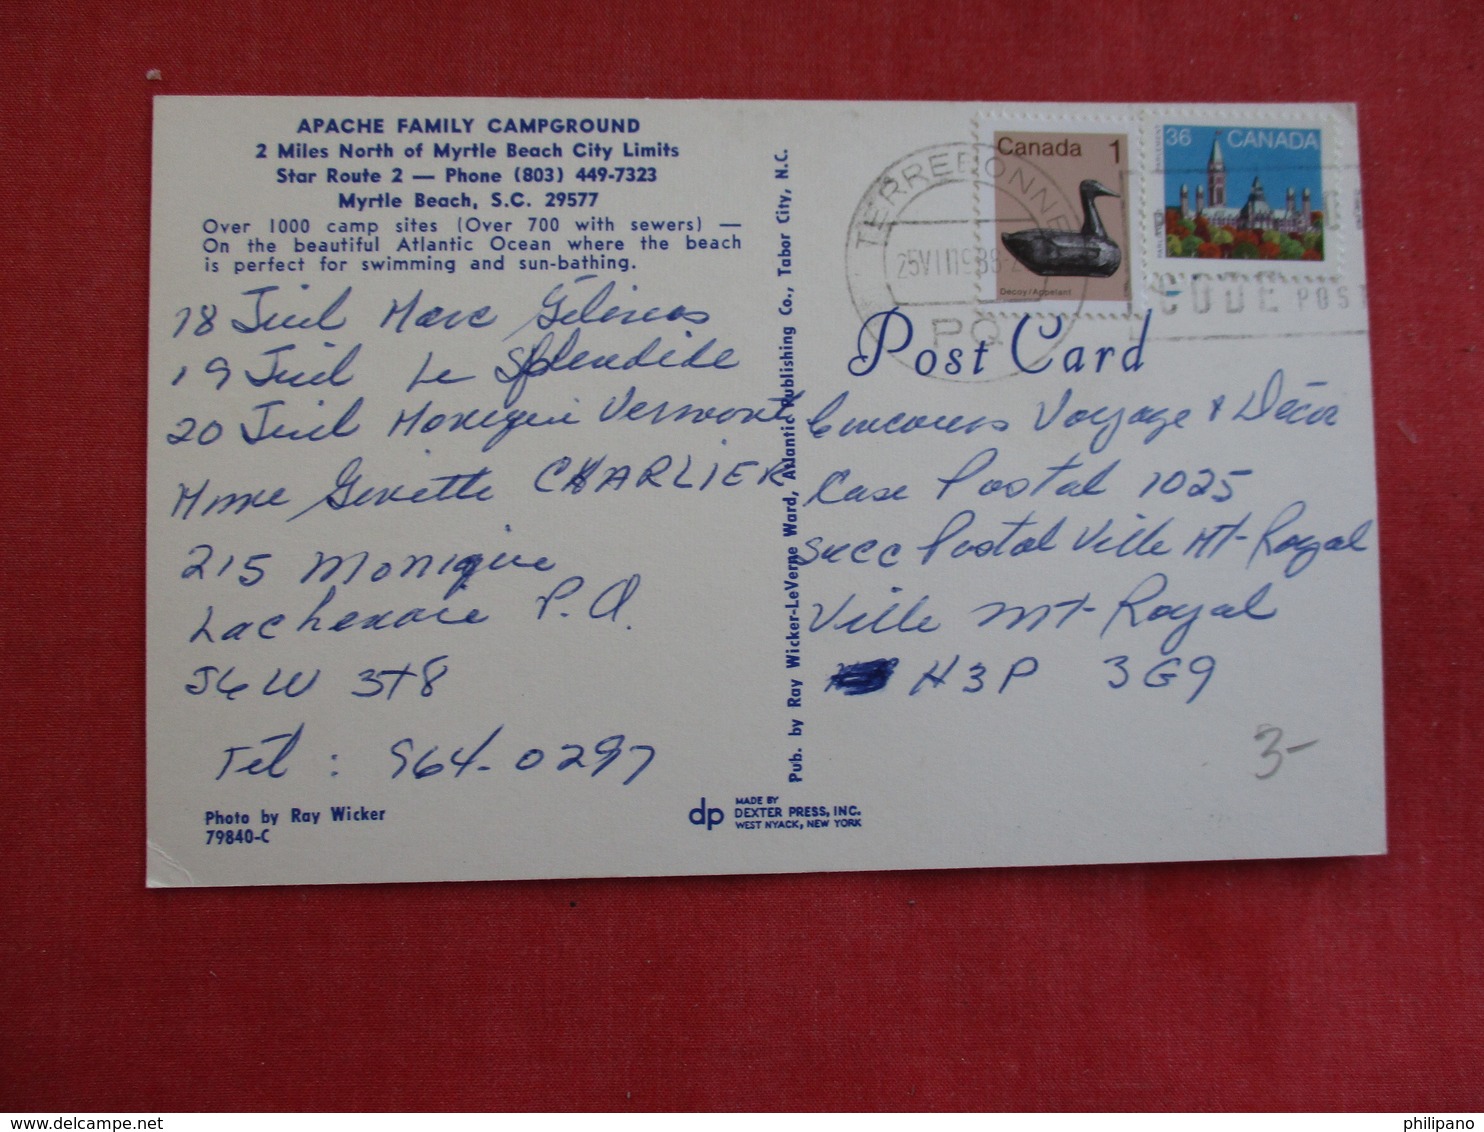 APACHE FAMILY CAMPGROUND
2 Miles North of Myrtle Beach City Limits
Star Route 2 — Phone (803) 449-7323
Myrtle Beach, S.C. 29577
Over 1000 camp sites (Over 700 with sewers) —
On the beautiful Atlantic Ocean where the beach
is perfect for swimming and sun-bathing.
18 Juil Marc Gélinas
19 Juil Le Splendide
20 Juil Monique Vermont
Mme Ginette CHARLIER
215 Monique
Lachenaie P.Q.
J6W 3T8
Tél : 964-0297
Photo by Ray Wicker
79840-C
Pub. by Ray Wicker-LeVerne Ward, Atlantic Publishing Co., Tabor City, N.C.
dp
MADE BY
DEXTER PRESS, INC.
WEST NYACK, NEW YORK
TERREBONNE
25 VII 1988
PQ
Canada 1
Decoy/Appelant
36 CANADA
CODE POST
Post Card
Concours Voyage & Décor
Case Postal 1025
Succ Postal Ville Mt-Royal
Ville Mt-Royal
H3P 3G9
3-
www.delcampe.net
philipano